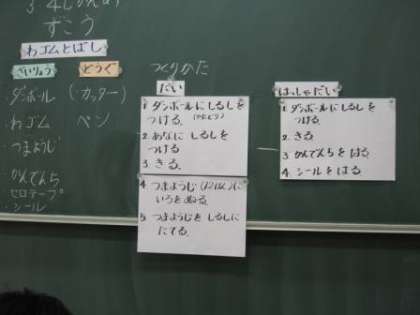 3.4じかんめ
ずこう
わゴムとばし
ざいりょう
どうぐ
・ダンボール
・わゴム
・つまようじ
・かんでんち
・セロテープ
・シール
(・カッター)
ペン
つくりかた
だい
1. ダンボールにしるしを
つける。
2. あなに しるしを
つける
3. きる。
4. つまようじ( )に
いろをぬる。
5. つまようじを しるしに
たてる。
はっしゃだい
1. ダンボールに しるしを
つける。
2. きる
3. かんでんちを はる。
4. シールを はる